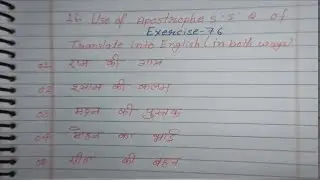 26 Use of Apostrophe s 's' & of
Exercise-76
Translate into English (in both ways)
01 राम की गाय
02 श्याम की कलम
03 मदन की पुस्तक
04 मोहन का भाई
05 सीता की बहन